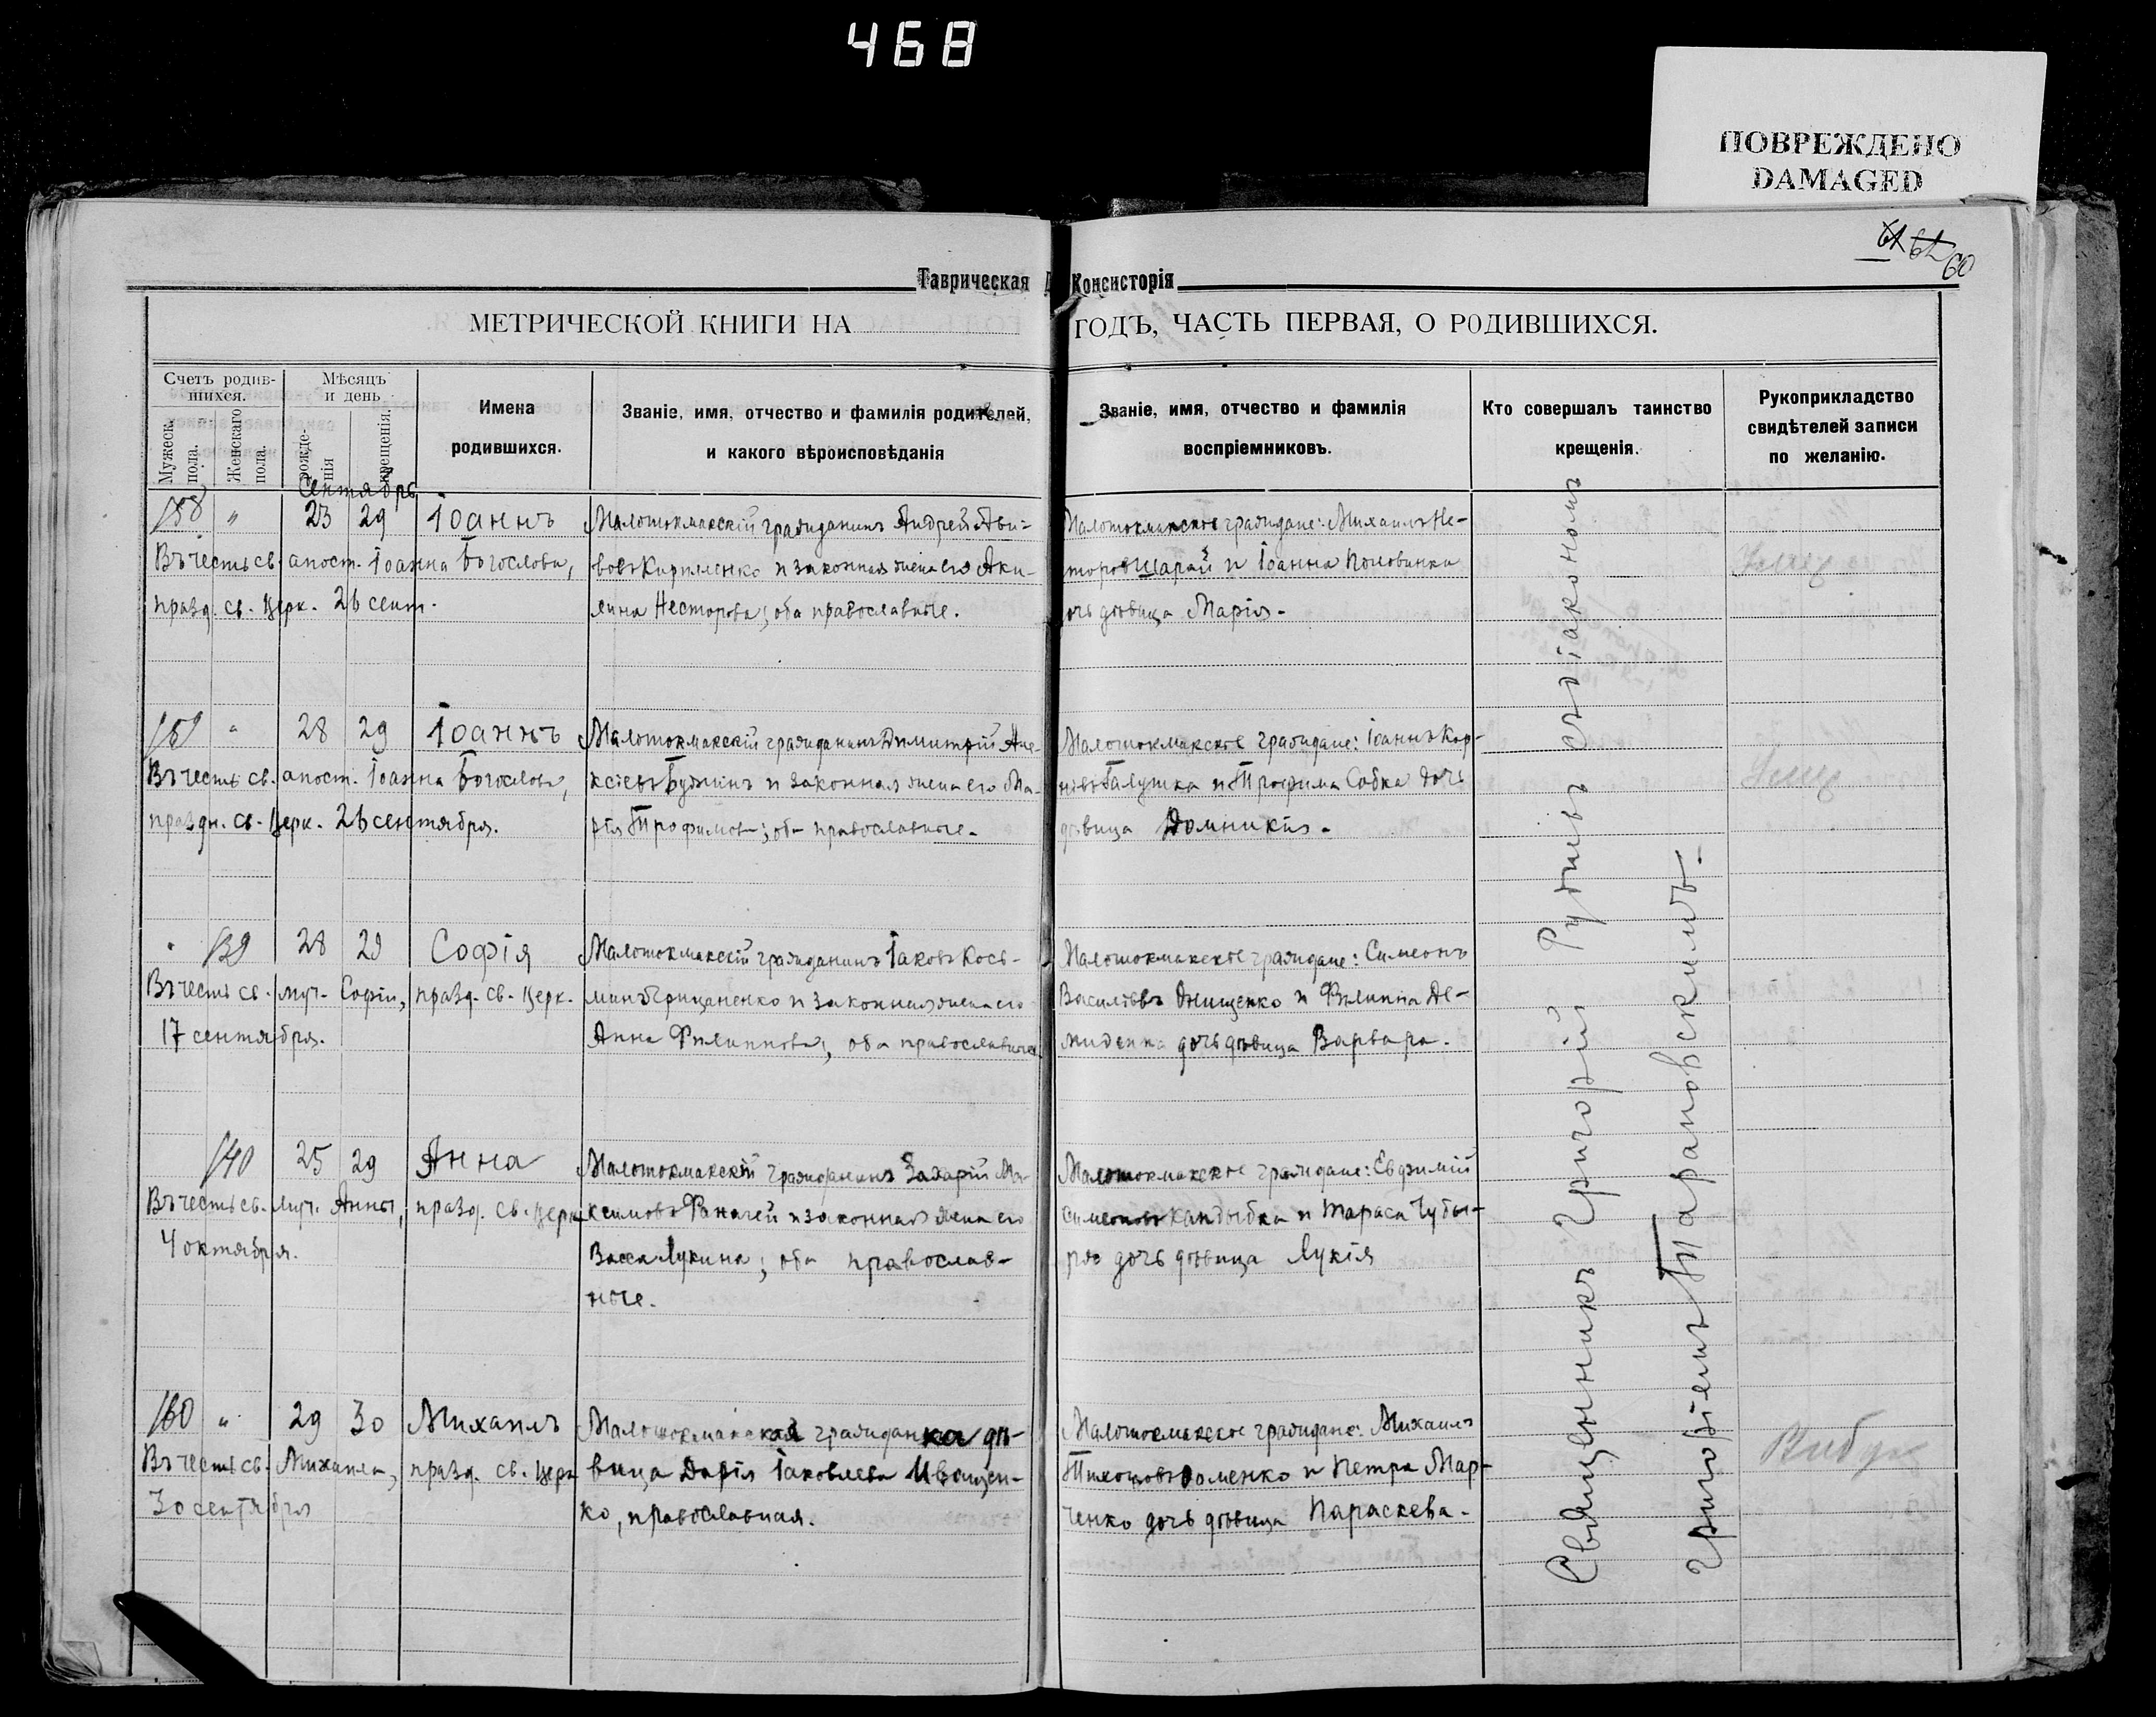 468
ПОВРЕЖДЕНО
DAMAGED
61 61 60
Таврическая Д Консисторія
МЕТРИЧЕСКОЙ КНИГИ НА ГОДЪ, ЧАСТЬ ПЕРВАЯ, О РОДИВШИХСЯ.
Счетъ родив-
шихся.
Мужеск. пола.
Женскаго пола.
Мѣсяцъ
и день
рожде-
нія
крещенія.
Имена
родившихся.
Званіе, имя, отчество и фамилія родителей,
и какого вѣроисповѣданія
Званіе, имя, отчество и фамилія
воспріемниковъ.
Кто совершалъ таинство
крещенія.
Рукоприкладство
свидѣтелей записи
по желанію.
Сентябрь
158 " 23 29 Іоаннъ
Въ честь св. апост. Іоанна Богослова,
празд. св. Церк. 26 сент.
Малотокмакскій гражданинъ Андрей
Кириленко и законная жена его Аки-
лина Несторова; оба православные.
Малотокмакскіе граждане: Михаилъ Не-
сторовъ Шарай и Іоанна Половинки
дочь дѣвица Марія.
159 " 28 29 Іоаннъ
Въ честь св. апост. Іоанна Богослова,
праздн. св. Церк. 26 сентября.
Малотокмакскій гражданинъ Димитрій Але-
ксіевъ и законная жена его Ма-
рія Трофимова; оба православные.
Малотокмакскіе граждане: Іоаннъ Кор-
ніевъ Галушка и Трофима Собка дочь
дѣвица Домникія.
" 139 28 29 Софія
Въ честь св. муч. Софіи, празд. св. Церк.
17 сентября.
Малотокмакскій гражданинъ Іаковъ Кось-
минъ Грицаненко и законная жена его
Анна Филиппова; оба православные.
Малотокмакскіе граждане: Симеонъ
Василіевъ Онищенко и Филиппа Де-
миденка дочь дѣвица Варвара.
140 25 29 Анна
Въ честь св. муч. Анны, празд. св. Церк.
4 октября.
Малотокмакскій гражданинъ Захарій Ма-
ксимовъ и законная жена его
Васса Лукина; оба православ-
ные.
Малотокмакскіе граждане: Евфимій
Симеоновъ Кандыбка и Тараса
дочь дѣвица Лукія
160 " 29 30 Михаилъ
Въ честь св. Михаила, празд. св. Церк
30 сентября
Малотокмакская гражданка дѣ-
вица Дарія Іаковлева Иващен-
ко, православная.
Малотокмакскіе граждане: Михаилъ
Тихоновъ Доменко и Петра Мар-
ченко дочь дѣвица Параскева.
Священникъ Григорій съ діакономъ
Григоріемъ Тарановскимъ.